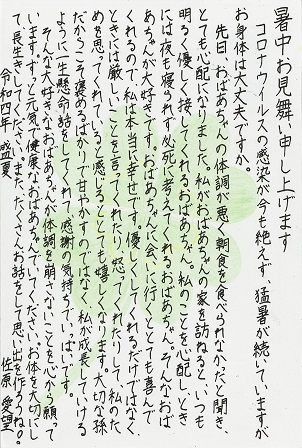 暑中お見舞い申し上げます
コロナウイルスの感染が今も絶えず、猛暑が続いていますが
お身体は大丈夫ですか。
先日、おばあちゃんの体調が悪く朝食を食べられなかったと聞き、
とても心配になりました。私がおばあちゃんの家を訪ねると、いつも
明るく優しく接してくれるおばあちゃん。私のことを心配し、とき
には夜も寝られず必死に考えてくれるおばあちゃん。そんなおば
あちゃんが大好きです。おばあちゃんに会いに行くととても喜んで
くれるので、私は本当に幸せです。優しくしてくれるだけではなく、
ときには厳しいことを言ってくれたり、怒ってくれたりして、私のた
めを思ってくれていると感じるととても嬉しくなります。大切な孫
だからこそ褒めるばかりで甘やかすのではなく、私が成長していける
ように一生懸命話をしてくれて、感謝の気持ちでいっぱいです。
そんな大好きなおばあちゃんが体調を崩さないことを心から願って
います。ずっと元気で健康なおばあちゃんでいてください。お体を大切にし
て、長生きしてください。また、たくさんお話をして思い出を作ろうね。
令和四年 盛夏
佐原 愛望